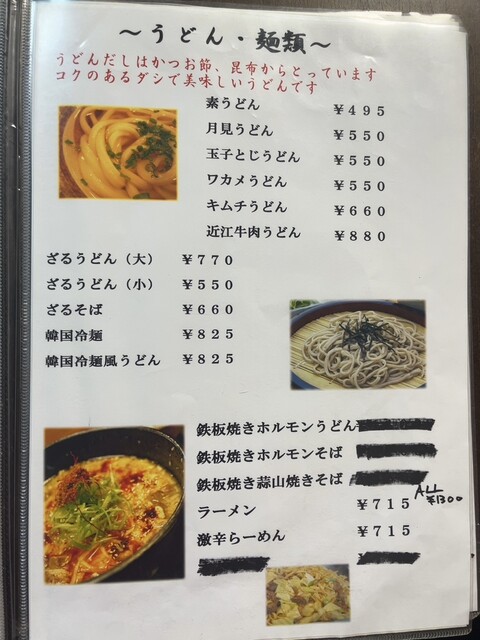 ～うどん・麺類～
うどんだしはかつお節、昆布からとっています
コクのあるダシで美味しいうどんです
素うどん ￥４９５
月見うどん ￥５５０
玉子とじうどん ￥５５０
ワカメうどん ￥５５０
キムチうどん ￥６６０
近江牛肉うどん ￥８８０
ざるうどん（大） ￥７７０
ざるうどん（小） ￥５５０
ざるそば ￥６６０
韓国冷麺 ￥８２５
韓国冷麺風うどん ￥８２５
鉄板焼きホルモンうどん
鉄板焼きホルモンそば
鉄板焼き蒜山焼きそば
ALL ¥1300
ラーメン ￥７１５
激辛らーめん ￥７１５